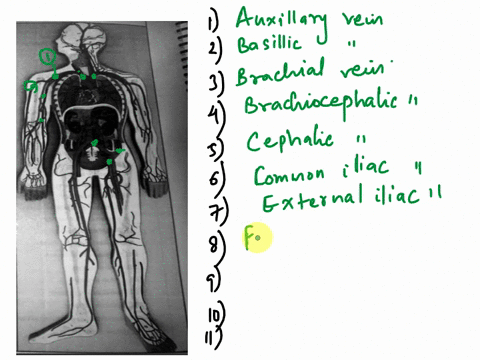 1) Auxillary vein
2) Basillic "
3) Brachial vein
4) Brachiocephalic "
5) Cephalic "
6) Common iliac "
7) External iliac "
8) F
9)
10)
11)
1